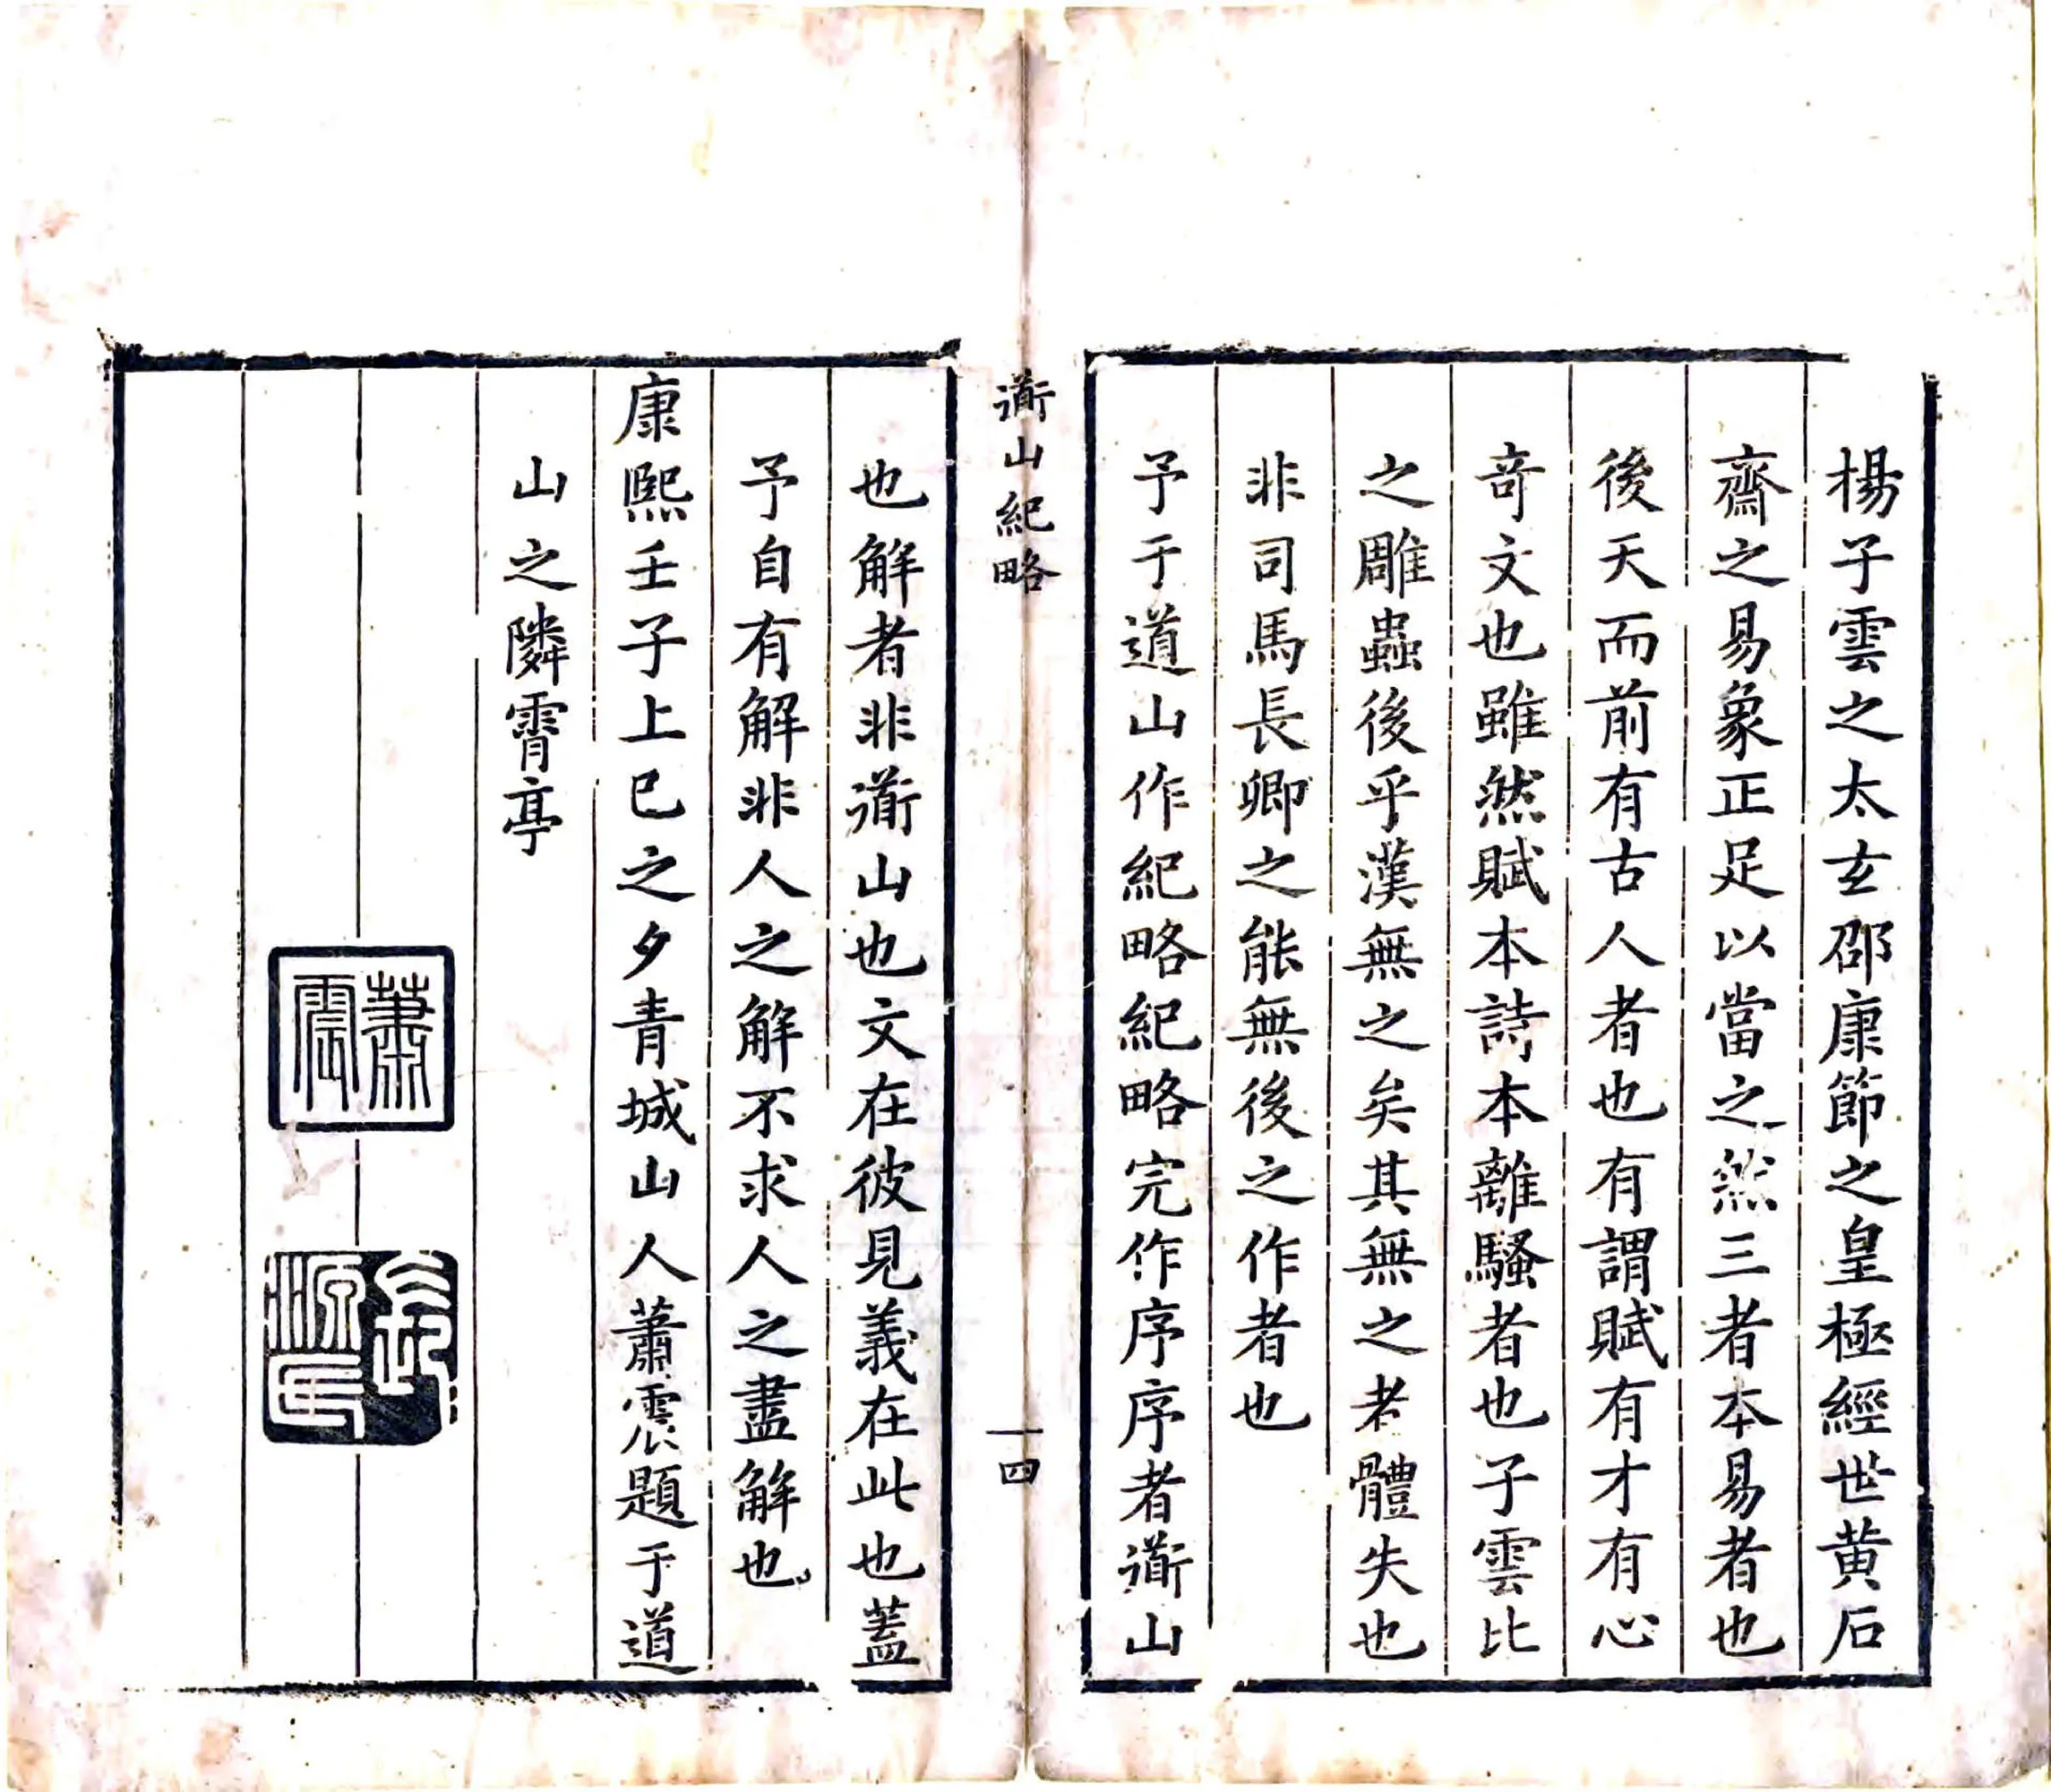 楊子雲之太玄邵康節之皇極經世黄石
齋之易象正足以當之然三者本易者也
後天而前有古人者也有謂賦有才有心
竒文也雖然賦本詩本離騷者也子雲比
之雕蟲後乎漢無之矣其無之者體失也
非司馬長卿之能無後之作者也
予于道山作紀略紀略完作序序者衟山
衟山紀略
一四
也解者非衟山也文在彼見義在此也蓋
予自有解非人之解不求人之盡解也
康熙壬子上巳之夕青城山人蕭震題于道
山之隣霄亭
蕭震